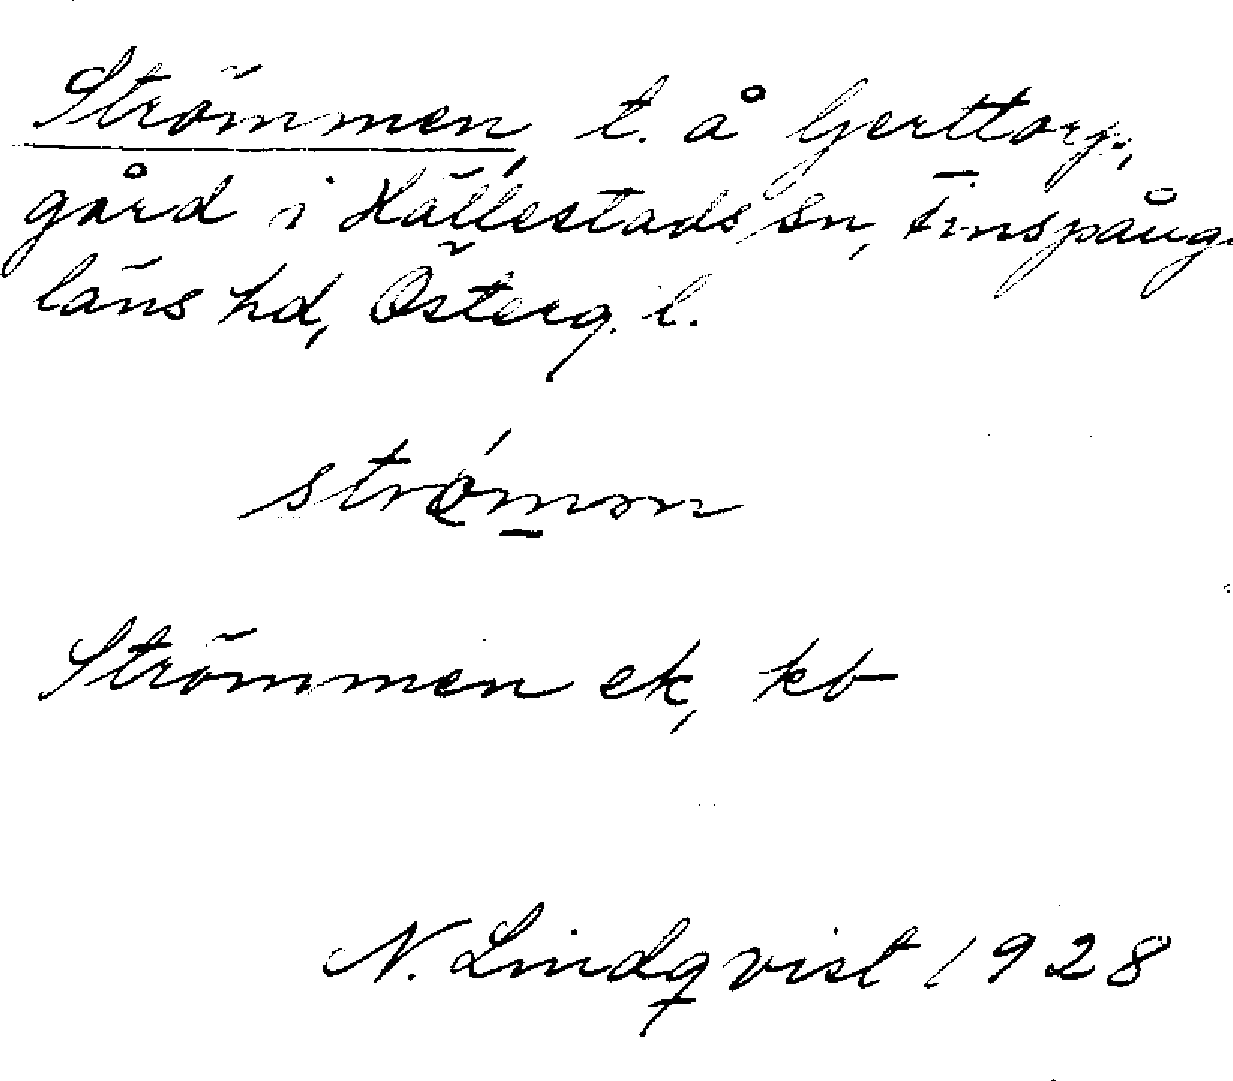 Strömmen, t. å Gerttorp,
gård i Hällestads sn, Finspång-
läns hd, Österg. l.
strǫ́mən
Strömmen ek, kb
N. Lindqvist 1928